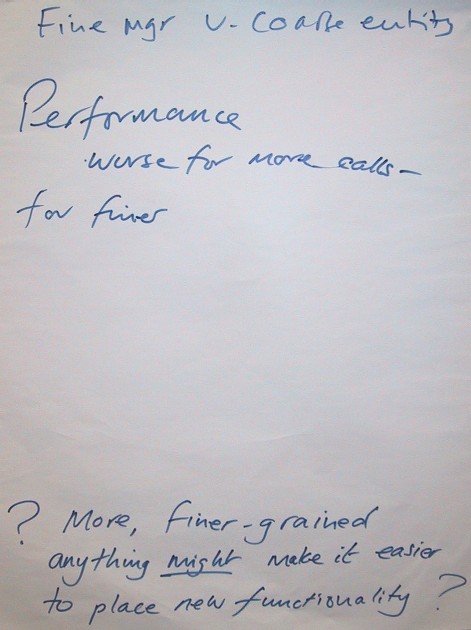 Fine mgr v. Coarse entity
Performance
worse for more calls -
for finer
? More, finer-grained
anything might make it easier
to place new functionality ?